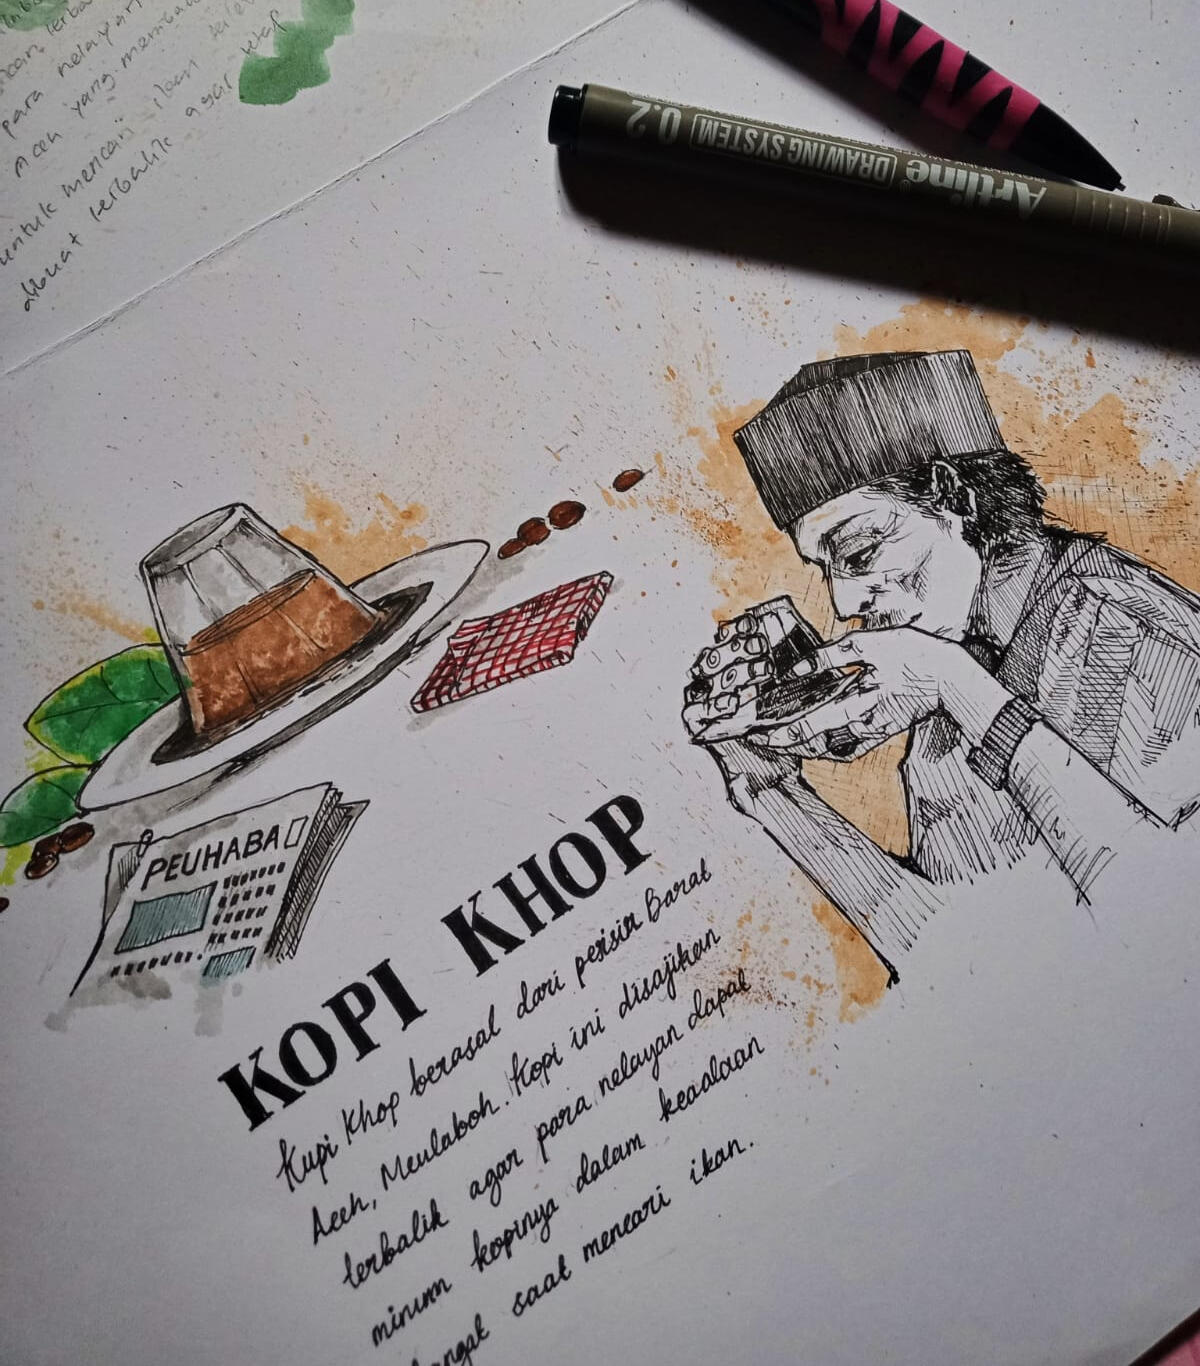 para nelayan
Aceh yang memba
untuk mencari ikan
dibuat terbalik agar
0.2
DRAWING SYSTEM
Artline
PEUHABA
KOPI KHOP
Kupi Khop berasal dari pesisir Barat
Aceh, Meulaboh. Kopi ini disajikan
terbalik agar para nelayan dapat
minum kopinya dalam keadaan
hangat saat mencari ikan.